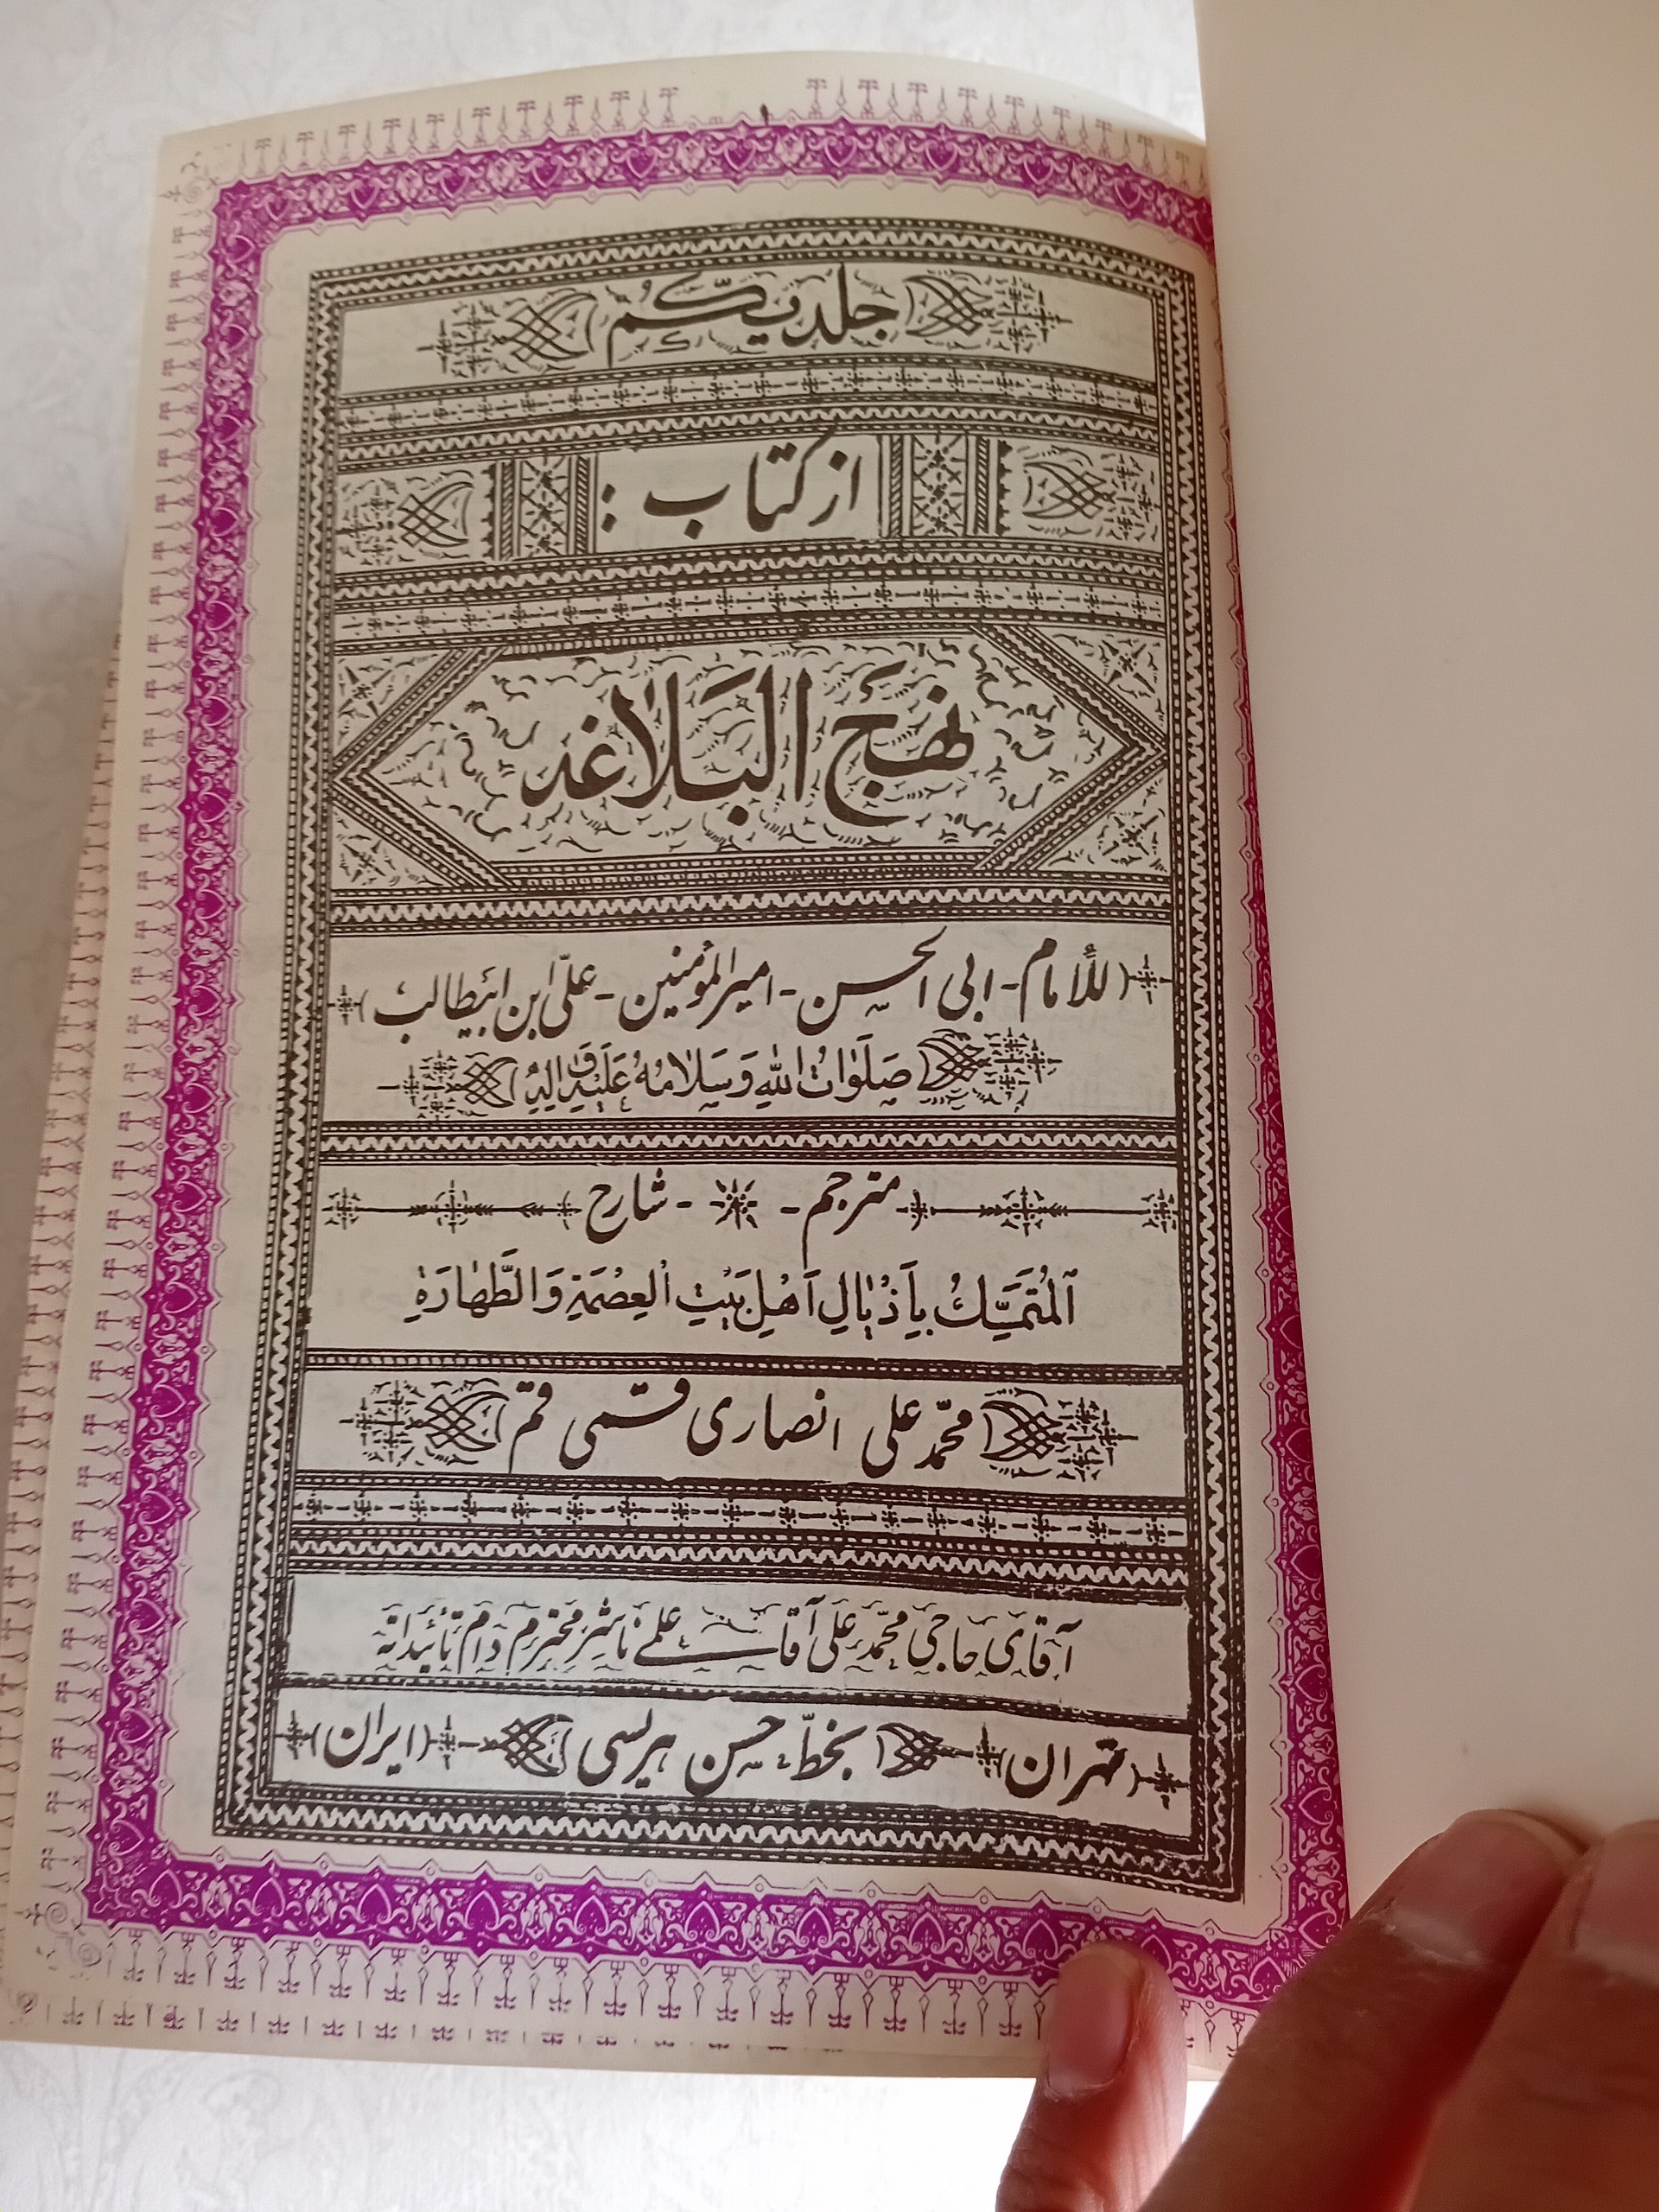 جلد یکّم
از کتاب :
نهج البَلاغه
(للأمام - ابی الحسن - امیرالمؤمنین - علیّ ابن ابیطالب)
صَلَواتُ اللهِ وَسَلامُهُ عَلَیْهِ وَالِهِ
مترجم - شارح
اَلمُتَمَسِّكُ بِاَذْیالِ اَهْلِ بَیْتِ الْعِصْمَةِ وَالطَّهارَةِ
محمّد علی انصاری قمی قم
آقای حاجی محمّد علی آقای علمی ناشر محترم دام تائیداته
(تهران) بخطّ حسن هریسی (ایران)